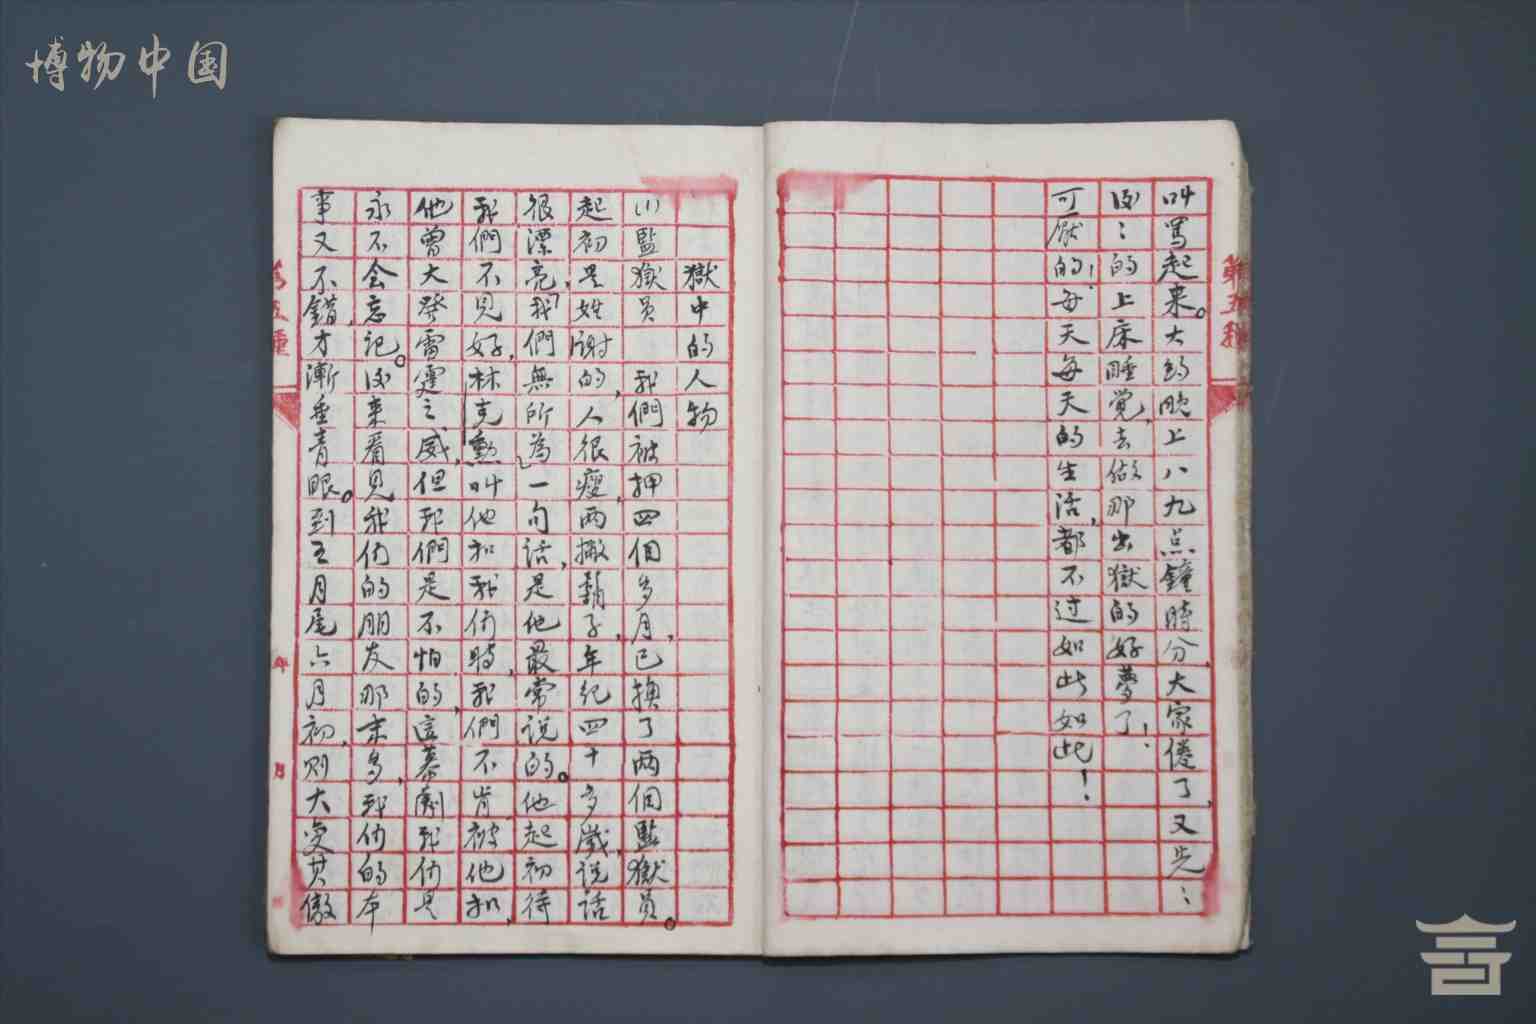 博物中国
叫罵起来。大約晚上八九点鐘時分,大家倦了,又先:
後:的上床睡覚,去做那出獄的好夢了!
可厭的!每天每天的生活,都不过如此如此!
第五種
獄中的人物
(1)監獄員 我們被押四個多月,已換了两個監獄員。
起初是姓謝的,人很瘦,两撇鬍子,年纪四十多歲,说话
很漂亮,我們無所為一句话,是他最常说的。他起初待
我們不見好,林克勳叫他扣我们時,我們不肯被他扣,
他曾大發雷霆之威,但我們是不怕的,這幕劇我们是
永不会忘记。後来看見我们的朋友那末多,我们的本
事又不錯,才漸垂青眼。到五月尾六月初,则大受其
第五種
年 月